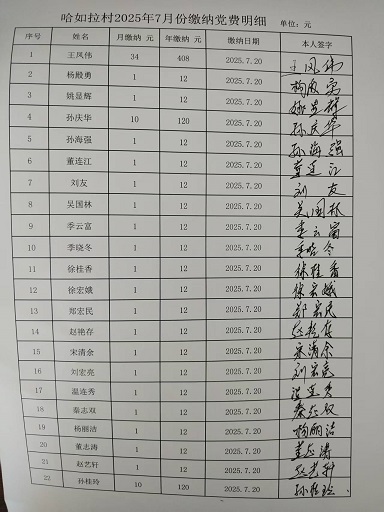 哈如拉村2025年7月份缴纳党费明细 单位：元
序号 姓名 月缴纳 元 年缴纳 元 缴纳日期 本人签字
1 王凤伟 34 408 2025.7.20 王凤伟
2 杨殿勇 1 12 2025.7.20 杨殿勇
3 姚显辉 1 12 2025.7.20 姚显辉
4 孙庆华 10 120 2025.7.20 孙庆华
5 孙海强 1 12 2025.7.20 孙海强
6 董连江 1 12 2025.7.20 董连江
7 刘友 1 12 2025.7.20 刘友
8 吴国林 1 12 2025.7.20 吴国林
9 季云富 1 12 2025.7.20 季云富
10 李晓冬 1 12 2025.7.20 李晓冬
11 徐桂香 1 12 2025.7.20 徐桂香
12 徐宏娥 1 12 2025.7.20 徐宏娥
13 郑宏民 1 12 2025.7.20 郑宏民
14 赵艳存 1 12 2025.7.20 赵艳存
15 宋清余 1 12 2025.7.20 宋清余
16 刘宏亮 1 12 2025.7.20 刘宏亮
17 温连秀 1 12 2025.7.20 温连秀
18 秦志双 1 12 2025.7.20 秦志双
19 杨丽洁 1 12 2025.7.20 杨丽洁
20 董志涛 1 12 2025.7.20 董志涛
21 赵艺轩 1 12 2025.7.20 赵艺轩
22 孙桂玲 10 120 2025.7.20 孙桂玲